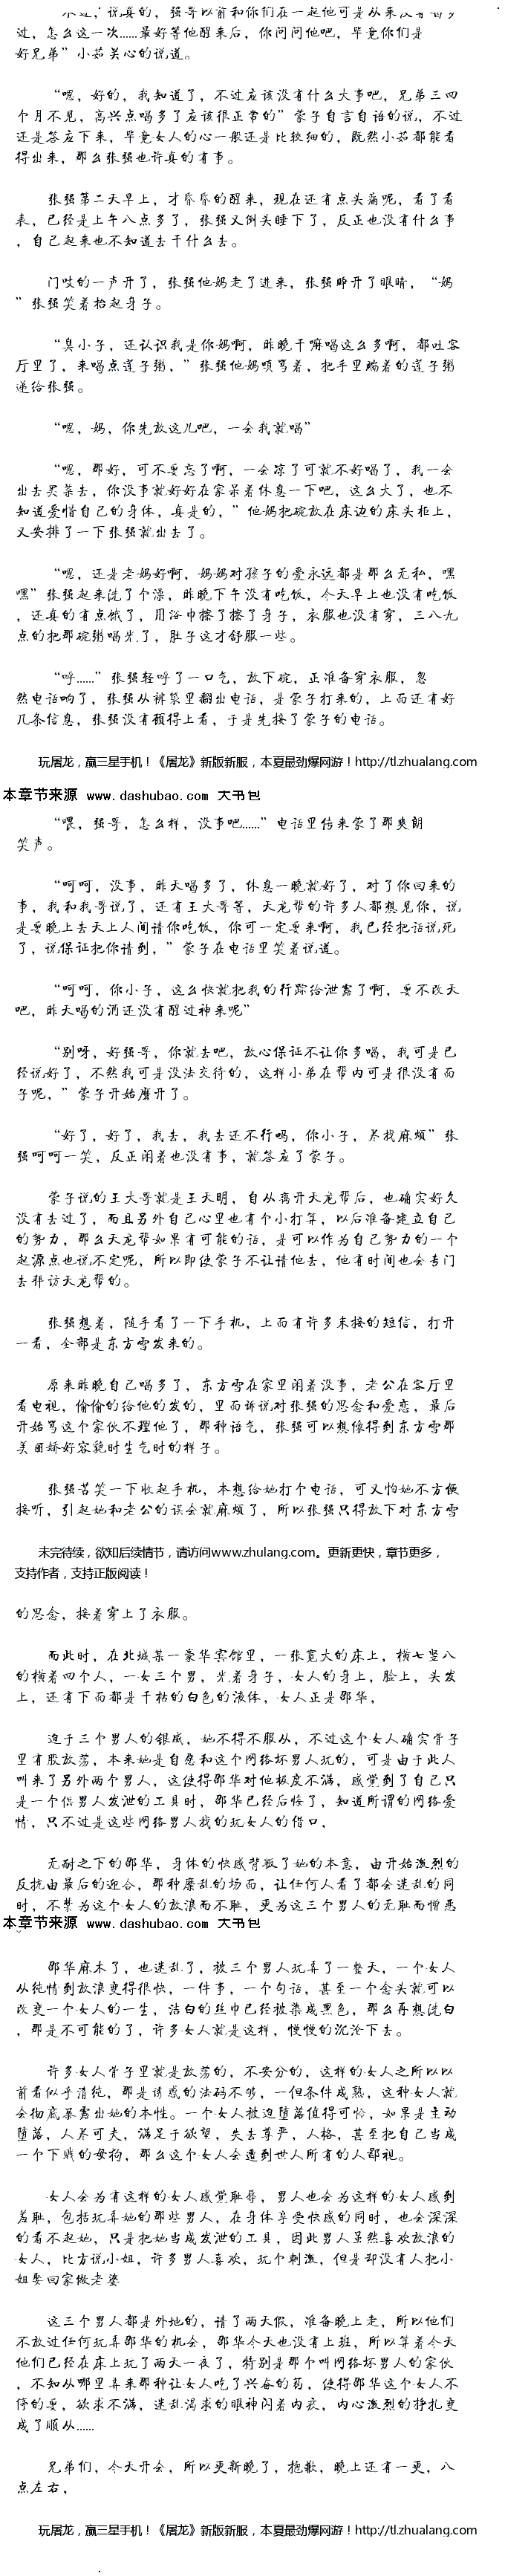 不过，说真的，强哥以前和你们在一起他可是从来没有喝多
过，怎么这一次……最好等他醒来后，你问问他吧，毕竟你们是
好兄弟”小茹关心的说道。
“嗯，好的，我知道了，不过应该没有什么大事吧，兄弟三四
个月不见，高兴点喝多了应该很正常的”蒙子自言自语的说，不过
还是答应下来，毕竟女人的心一般还是比较细的，既然小茹都能看
得出来，那么张强也许真的有事。
张强第二天早上，才昏昏的醒来，现在还有点头痛呢，看了看
表，已经是上午八点多了，张强又倒头睡下了，反正也没有什么事
，自己起来也不知道去干什么去。
门吱的一声开了，张强他妈走了进来，张强睁开了眼睛，“妈
”张强笑着抬起身子。
“臭小子，还认识我是你妈啊，昨晚干嘛喝这么多啊，都吐客
厅里了，来喝点莲子粥，”张强他妈嗔骂着，把手里端着的莲子粥
递给张强。
“嗯，妈，你先放这儿吧，一会我就喝”
“嗯，那好，可不要忘了啊，一会凉了可就不好喝了，我一会
出去买菜去，你没事就好好在家呆着休息一下吧，这么大了，也不
知道爱惜自己的身体，真是的，”他妈把碗放在床边的床头柜上，
又安排了一下张强就出去了。
“嗯，还是老妈好啊，妈妈对孩子的爱永远都是那么无私，嘿
嘿”张强起来洗了个澡，昨晚下午没有吃饭，今天早上也没有吃饭
，还真的有点饿了，用浴巾擦了擦了身子，衣服也没有穿，三八九
点的把那碗粥喝光了，肚子这才舒服一些。
“呼……”张强轻呼了一口气，放下碗，正准备穿衣服，忽
然电话响了，张强从裤袋里翻出电话，是蒙子打来的，上面还有好
几条信息，张强没有顾得上看，于是先接了蒙子的电话。
玩屠龙，赢三星手机！《屠龙》新版新服，本夏最劲爆网游！http://tl.zhualang.com
本章节来源 www.dashubao.com 大书包
“喂，强哥，怎么样，没事吧……”电话里传来蒙了那爽朗
笑声。
“呵呵，没事，昨天喝多了，休息一晚就好了，对了你回来的
事，我和我哥说了，还有王大哥等，天龙帮的许多人都想见你，说
是要晚上去天上人间请你吃饭，你可一定要来啊，我已经把话说死
了，说保证把你请到，”蒙子在电话里笑着说道。
“呵呵，你小子，这么快就把我的行踪给泄露了啊，要不改天
吧，昨天喝的酒还没有醒过神来呢”
“别呀，好强哥，你就去吧，放心保证不让你多喝，我可是已
经说好了，不然我可是没法交待的，这样小弟在帮内可是很没有面
子呢，”蒙子开始磨开了。
“好了，好了，我去，我去还不行吗，你小子，养找麻烦”张
强呵呵一笑，反正闲着也没有事，就答应了蒙子。
蒙子说的王大哥就是王天明，自从离开天龙帮后，也确实好久
没有去过了，而且另外自己心里也有个小打算，以后准备建立自己
的势力，那么天龙帮如果有可能的话，是可以作为自己势力的一个
起源点也说不定呢，所以即使蒙子不让请他去，他有时间也会专门
去拜访天龙帮的。
张强想着，随手看了一下手机，上面有许多未接的短信，打开
一看，全部是东方雪发来的。
原来昨晚自己喝多了，东方雪在家里闲着没事，老公在客厅里
看电视，偷偷的给他的发的，里面诉说对张强的思念和爱恋，最后
开始骂这个家伙不理他了，那种语气，张强可以想像得到东方雪那
美丽娇好容貌时生气时的样子。
张强苦笑一下收起手机，本想给她打个电话，可又怕她不方便
接听，引起她和老公的误会就麻烦了，所以张强只得放下对东方雪
未完待续，欲知后续情节，请访问www.zhulang.com。更新更快，章节更多，
支持作者，支持正版阅读！
的思念，接着穿上了衣服。
而此时，在北城某一豪华宾馆里，一张宽大的床上，横七竖八
的横着四个人，一女三个男，光着身子，女人的身上，脸上，头发
上，还有下面都是干枯的白色的液体，女人正是邵华，
迫于三个男人的银威，她不得不服从，不过这个女人确实骨子
里有股放荡，本来她是自愿和这个网络坏男人玩的，可是由于此人
叫来了另外两个男人，这使得邵华对他极度不满，感觉到了自己只
是一个供男人发泄的工具时，邵华已经后悔了，知道所谓的网络爱
情，只不过是这些网络男人找的玩女人的借口，
无耐之下的邵华，身体的快感背叛了她的本意，由开始激烈的
反抗由最后的迎合，那种糜乱的场面，让任何人看了都会迷乱的同
时，不禁为这个女人的放浪而不耻，更为这三个男人的无耻而憎恶
本章节来源 www.dashubao.com 大书包
。
邵华麻木了，也迷乱了，被三个男人玩弄了一整天，一个女人
从纯情到放浪变得很快，一件事，一个句话，甚至一个念头就可以
改变一个女人的一生，洁白的丝巾已经被染成黑色，那么再想洗白
，那是不可能的了，许多女人就是这样，慢慢的沉沦下去。
许多女人骨子里就是放荡的，不安分的，这样的女人之所以以
前看似乎清纯，那是诱惑的法码不够，一但条件成熟，这种女人就
会彻底暴露出她的本性。一个女人被迫堕落值得可怜，如果是主动
堕落，人尽可夫，满足于欲望，失去尊严，人格，甚至把自己当成
一个下贱的母狗，那么这个女人会遭到世人所有的人鄙视。
女人会为有这样的女人感觉耻辱，男人也会为这样的女人感到
羞耻，包括玩弄她的那些男人，在身体享受快感的同时，也会深深
的看不起她，只是把她当成发泄的工具，因此男人虽然喜欢放浪的
女人，比方说小姐，许多男人喜欢，玩个刺激，但是却没有人把小
姐娶回家做老婆
这三个男人都是外地的，请了两天假，准备晚上走，所以他们
不放过任何玩弄邵华的机会，邵华今天也没有上班，所以算着今天
他们已经在床上玩了两天一夜了，特别是那个叫网络坏男人的家伙
，不知从哪里弄来那种让女人吃了兴奋的药，使得邵华这个女人不
停的要，欲求不满，迷乱渴求的眼神闪着内衣，内心激烈的挣扎变
成了顺从……
兄弟们，今天开会，所以更新晚了，抱歉，晚上还有一更，八
点左右，
玩屠龙，赢三星手机！《屠龙》新版新服，本夏最劲爆网游！http://tl.zhualang.com